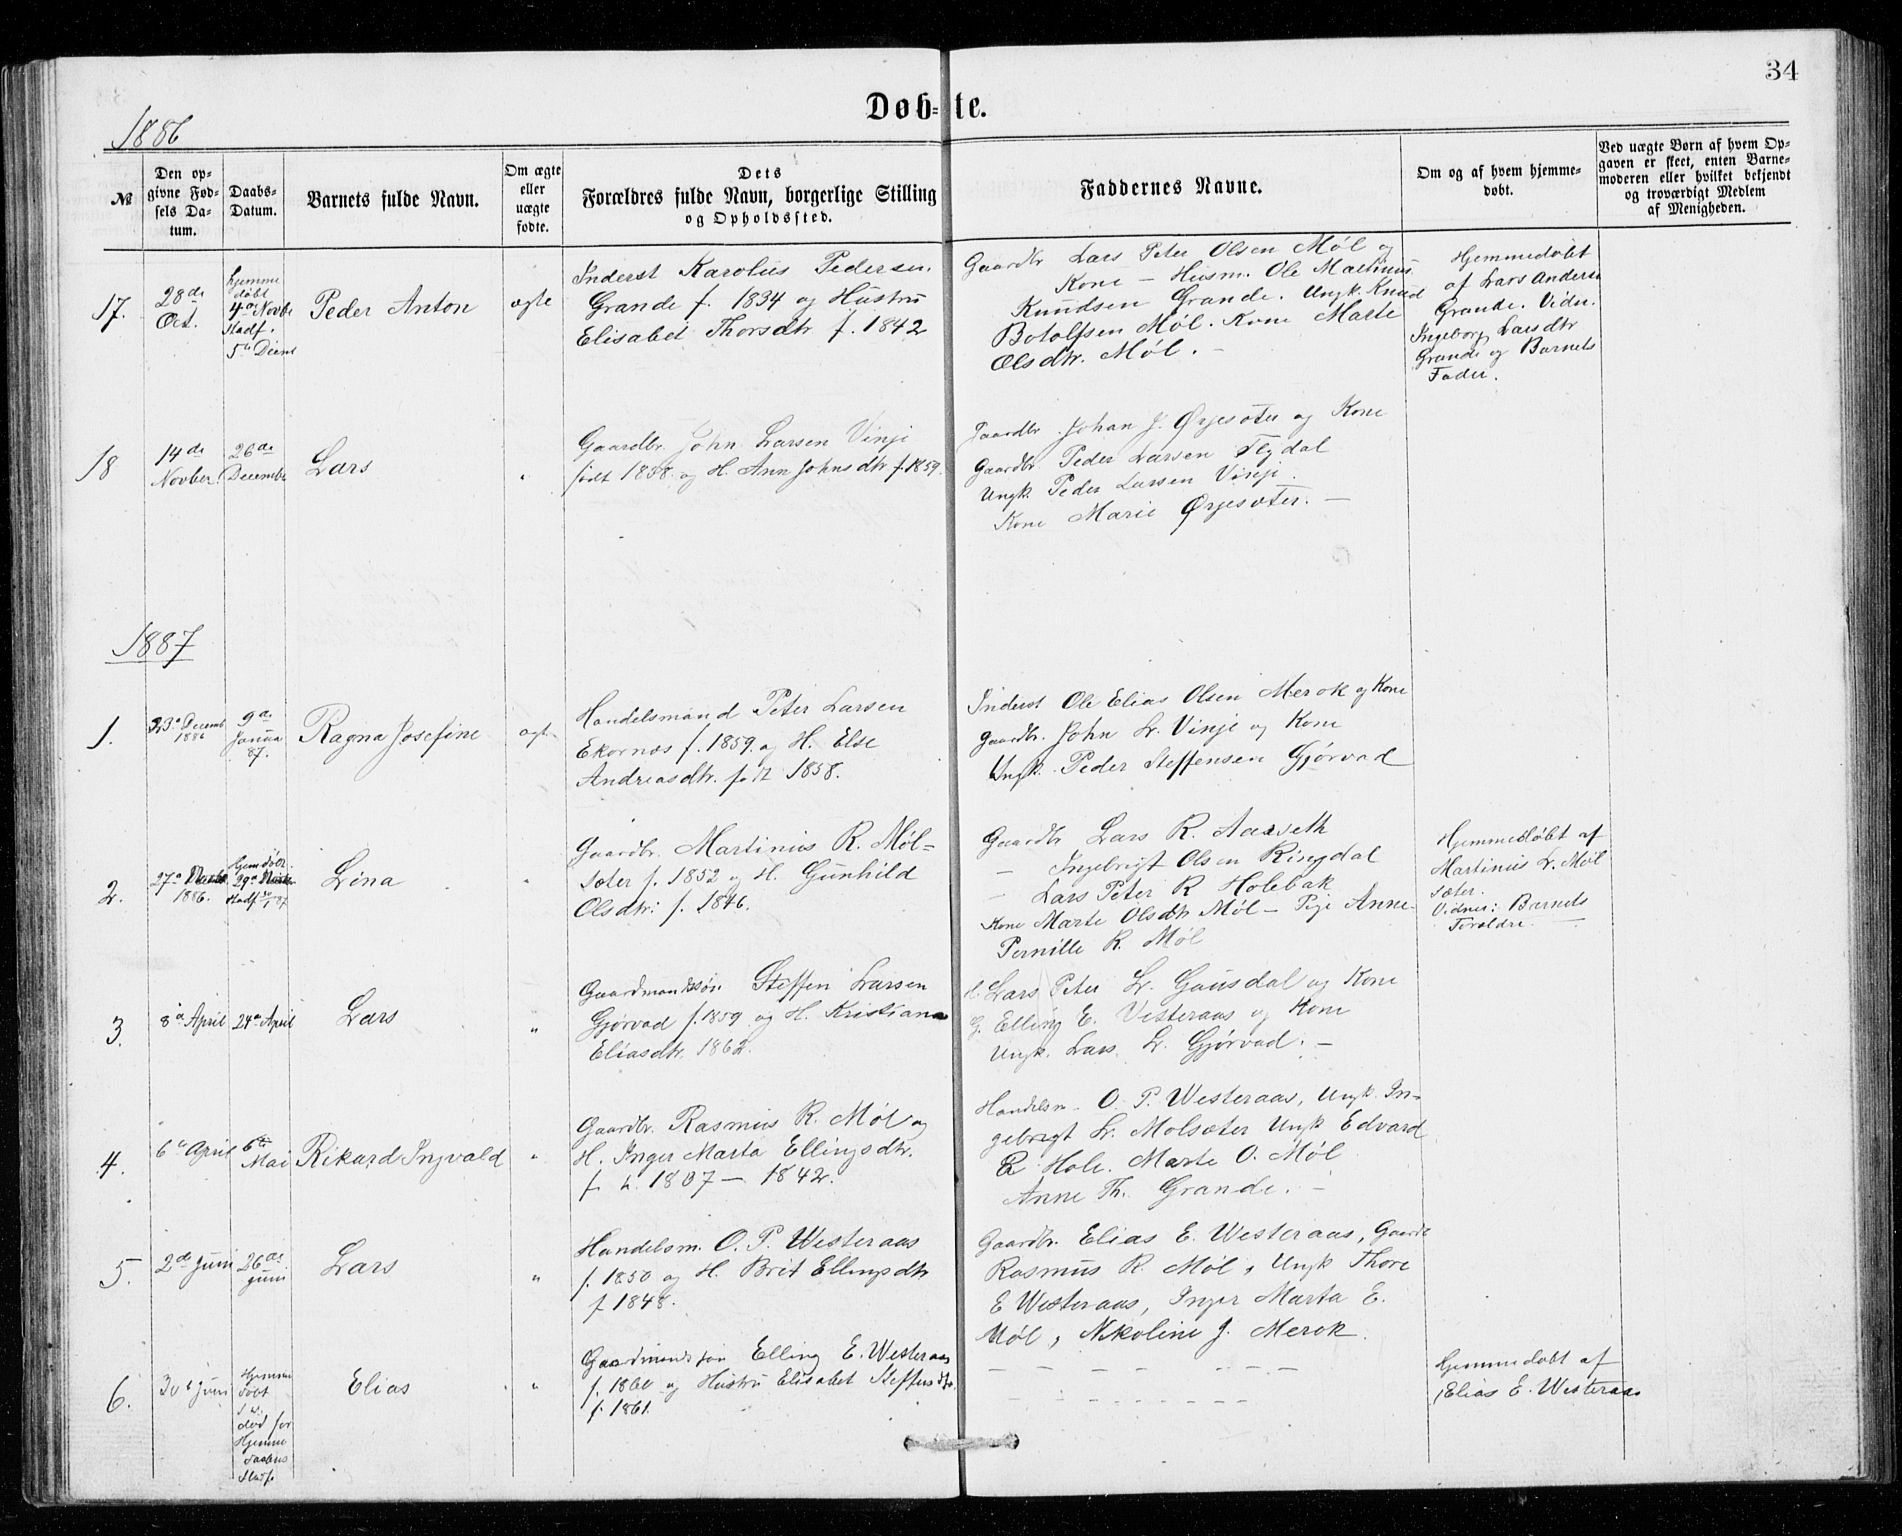 34
Døb=te.
1886
№
Den op-
givne Fød-
sels Da-
tum.
Daabs-
Datum.
Barnets fulde Navn.
Om ægte
eller
uægte
fødte.
Dets
Forældres fulde Navn, borgerlige Stilling
og Opholdssted.
Faddernes Navne.
Om og af hvem hjemme-
døbt.
Ved uægte Børn af hvem Op-
gaven er skeet, enten Barne-
moderen eller hvilket bekjendt
og troværdigt Medlem
af Menigheden.
17.
28de
Oct.
hjemme
døbt
4de Novbr
Stadf.
5te Decmb
Peder Anton
ægte
Inderst Karolus Pedersen
Grande f. 1834 og Hustru
Elisabet Thorsdtr f. 1842
Gaardbr Lars Peter Olsen Møl og
Kone — Husm. Ole Martinus
Knudsen Grande. Ungk. Knud
Botolfsen Møl. Kone Marte
Olsdtr. Møl. —
Hjemmedøbt
af Lars Anderse
Grande. Vidn.
Ingeborg Larsdtr
Grande og Barnets
Fader.
18
14de
Novber
26de
December
Lars
"
Gaardbr. John Larsen Vinje
født 1858 og H. Ann Johnsdtr f. 1859.
Gaardbr. Johan J. Ørjesæter og Kone
Gaardbr Peder Larsen Flydal
Ungk. Peder Larsen Vinje.
Kone Marie Ørjesæter. —
1887
1.
23de Decemb
1886
9de
Janua
87.
Ragna Josefine
ægte
Handelsmand Peter Larsen
Ekornæs f. 1859. og H. Else
Andreasdtr. født 1858.
Inderst Ole Elias Olsen Merok og Kone
Gaardbr. John Lr. Vinje og Kone
Ungk. Peder Steffensen Gjørvad
2.
27de
1886.
Hjemdøbt
29de
Stadf
Lina
"
Gaardbr. Martinus R. Møl-
sæter f. 1852 og H. Gunhild
Olsdtr: f. 1846.
Gaardbr Lars R. Aaseth
— Ingebrigt Olsen Ringdal
— Lars Peter R Holebak
Kone Marte Olsdtr Møl — Pige Anne
Pernille R. Møl
Hjemmedøbt af
Martinus Lr. Møl
sæter.
Vidner: Barnets
Forældre. —
3.
8de April
24de April
Lars
"
Gaardmandssøn Steffen Larsen
Gjørvad f. 1859 og H. Kristiana
Eliasdtr. 1862.
Lars Peter Lr. Gausdal og Kone
G. Elling E. Vesteraas og Kone
Ungk. Lars Lr. Gjørvad. —
4.
6te April
6te
Mai
Rikard Ingvald
"
Gaardbr. Rasmus R. Møl og
H. Inger Marta Ellingsdtr.
1842.
Handelsm. O. P. Westeraas, Ungk. In-
gebrigt Lr. Mølsæter Ungk Edvard
R Hole. Marte O. Møl
Anne Th. Grande. —
5.
2de Juni
26de
Juni
Lars
"
Handelsm. O. P. Westeraas
f. 1850 og H. Brit Ellingsdtr
f 1848.
Gaardbr. Elias E. Westeraas, Gaardb
Rasmus R. Møl, Ungk Thore
E Westeraas, Inger Marta E.
Møl, Nikoline J. Merok.
6.
30te Juni
Hjemme
døbt
død før
Hjemme
daabens
Stadf.
Elias
"
Gaardmandssøn Elling E. Westeraas
f. 1860 og Hustru Elisabet Steffensdtr
f. 1861.
Hjemmedøbt af
Elias E. Westeraas